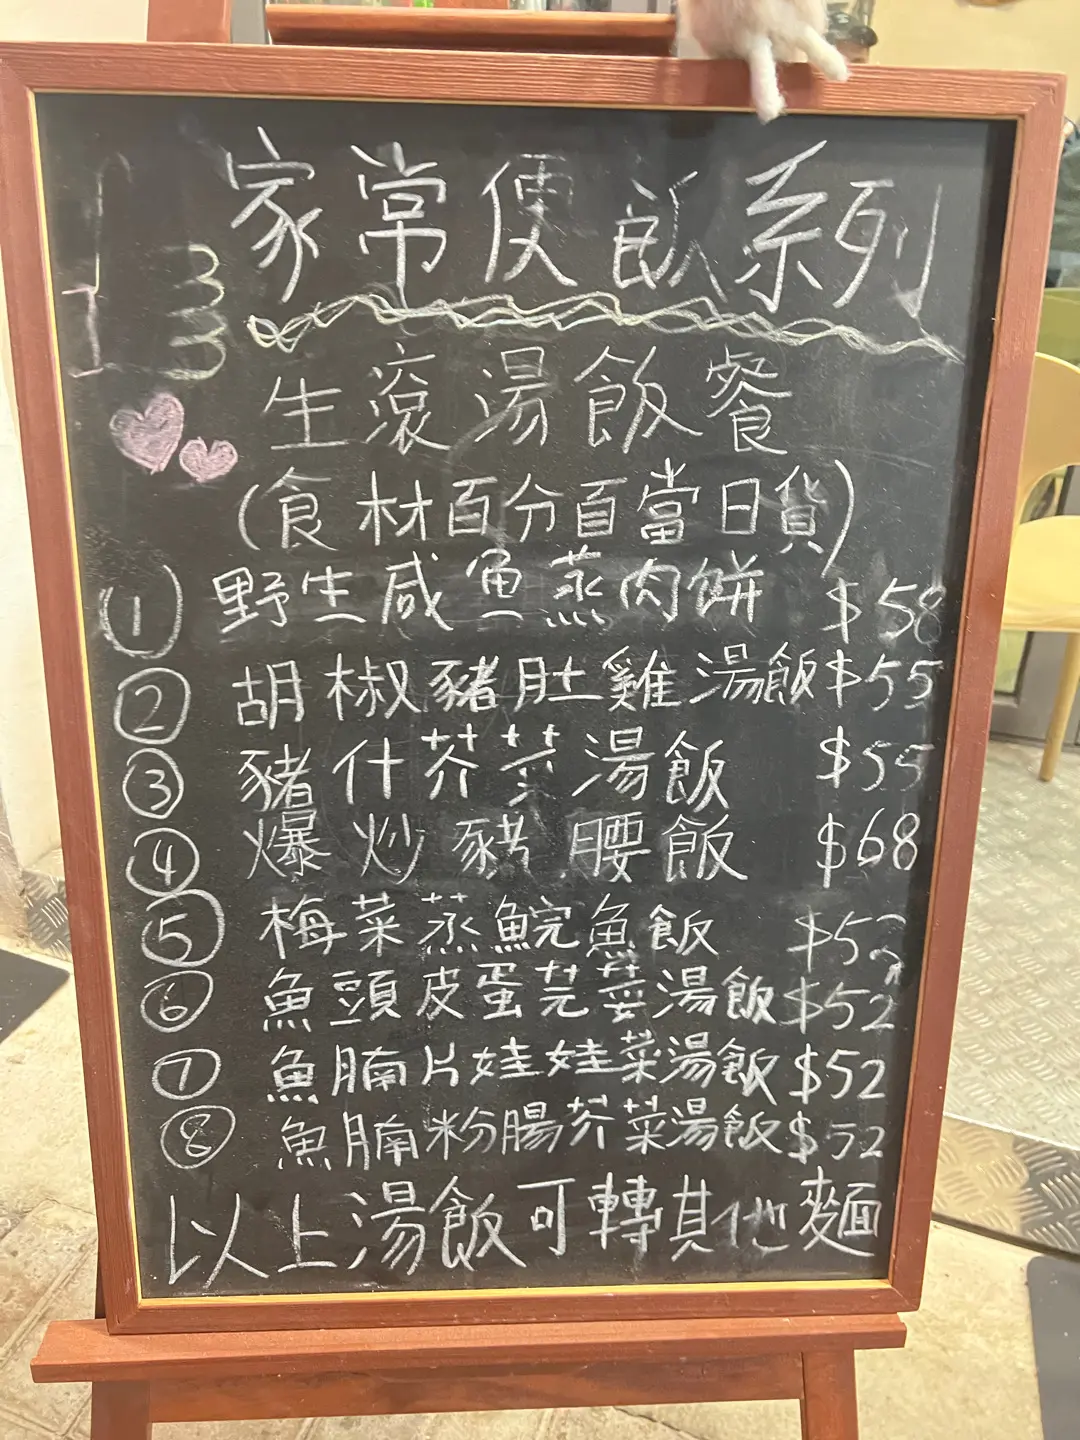 家常便飯系列
生滾湯飯餐
(食材百分百當日貨)
① 野生咸魚蒸肉餅 $58
② 胡椒豬肚雞湯飯 $55
③ 豬什芥菜湯飯 $55
④ 爆炒豬腰飯 $68
⑤ 梅菜蒸鯇魚飯
⑥ 魚頭皮蛋芫荽湯飯 $52
⑦ 魚腩片娃娃菜湯飯 $52
⑧ 魚腩粉腸芥菜湯飯 $52
以上湯飯可轉其他麵